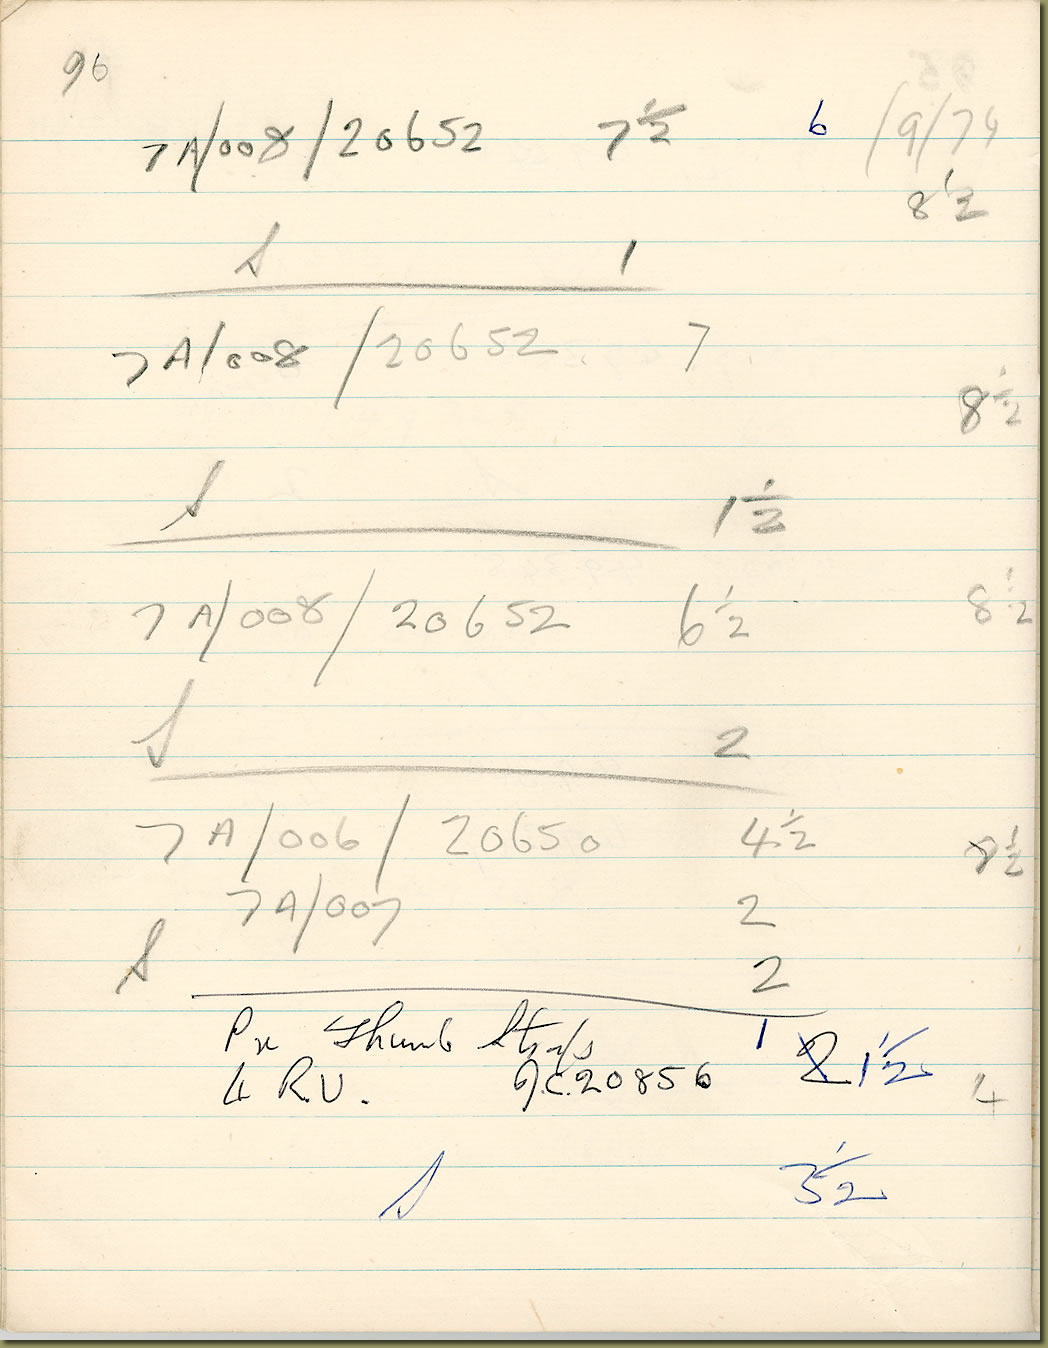 96
7A/008/20652 7½ 6 /9/74
8½
S 1
7A/008/20652 7
8½
S 1½
7A/008/20652 6½ 8½
S 2
7A/006/20650 4½ 8½
7A/007 2
S 2
Thumb 1 1½
4 R.V. J.C.20856
4
S 3½